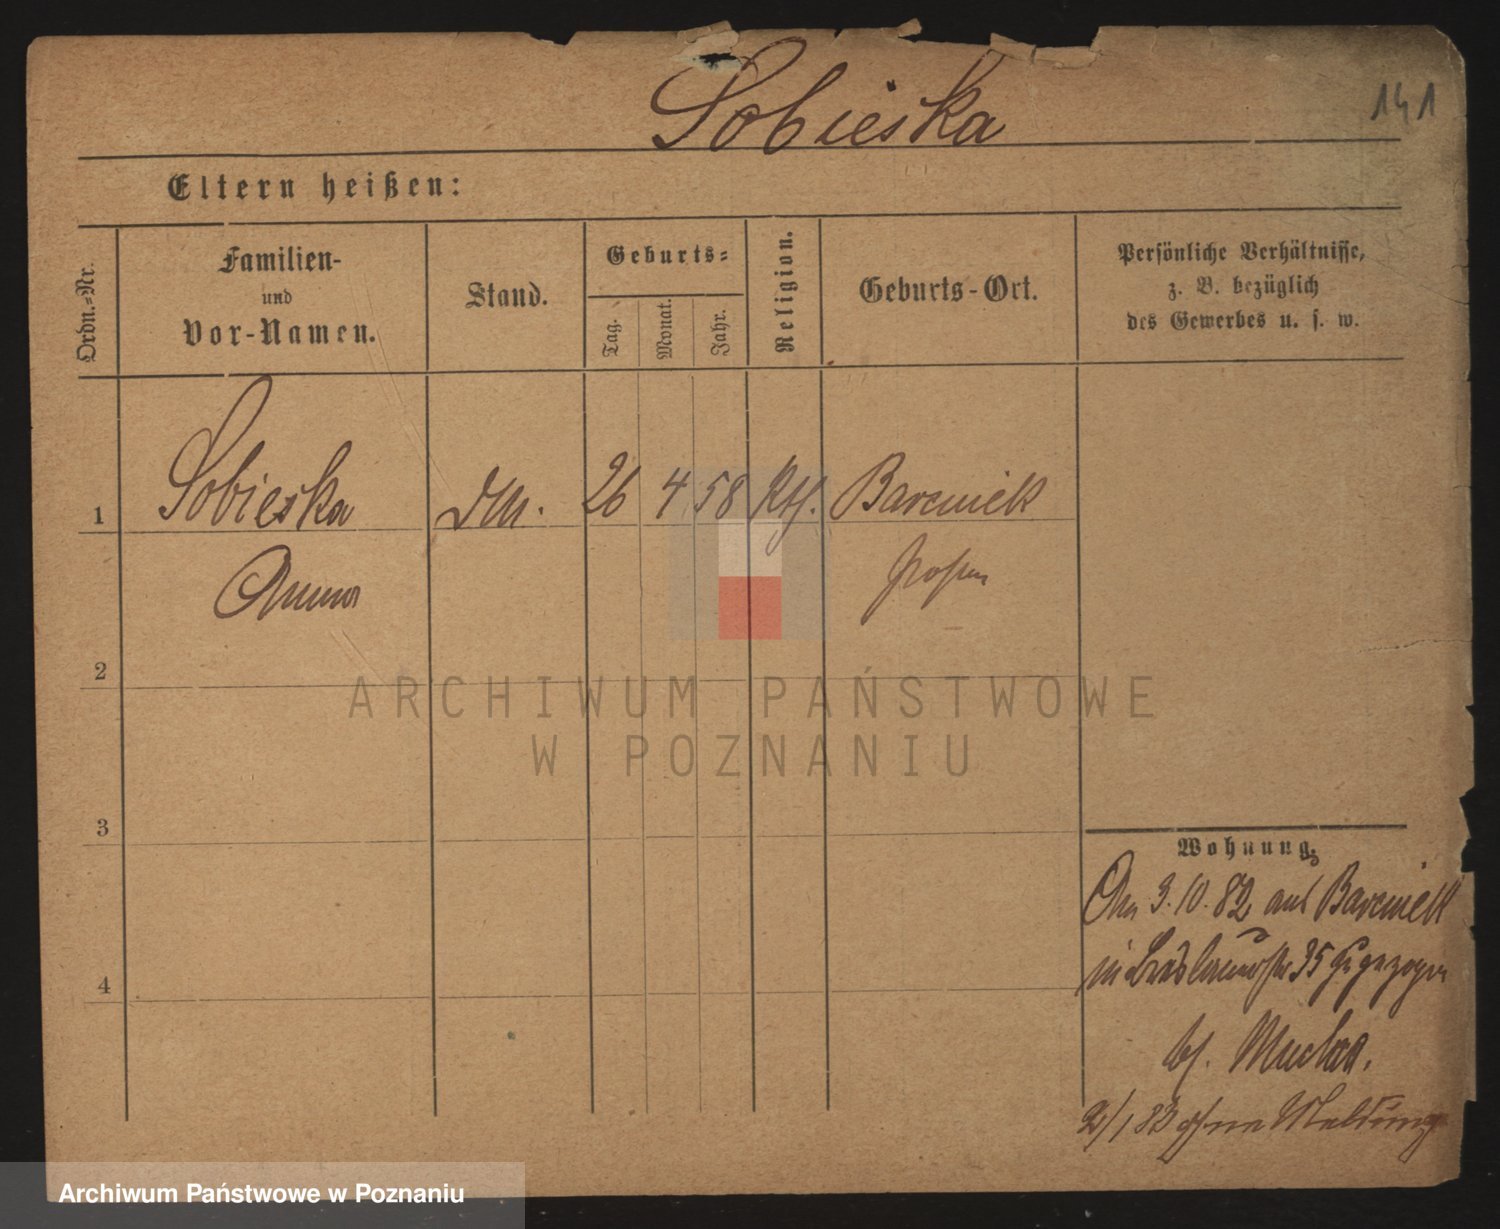 Sobieska
141
Eltern heißen:
Ordn.-Nr.
Familien-
und
Vor-Namen.
Stand.
Geburts-
Tag.
Monat.
Jahr.
Religion.
Geburts-Ort.
Persönliche Verhältnisse,
z. B. bezüglich
des Gewerbes u. s. w.
1
Sobieska
26
4
58
Kth.
Barcinek
Anna
Posen
2
ARCHIWUM PAŃSTWOWE
W POZNANIU
3
Wohnung.
4
3.10.82 aus Barcinek
in 35 zugezogen
bei
2/1 83 ohne Meldung
Archiwum Państwowe w Poznaniu